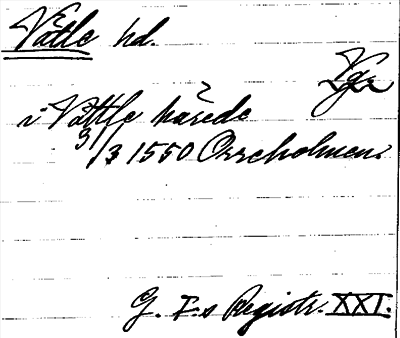 Vättle hd.
Vgr
i Vättle härede
3/3 1550 Orreholmen.
G. I.s Registr. XXI.